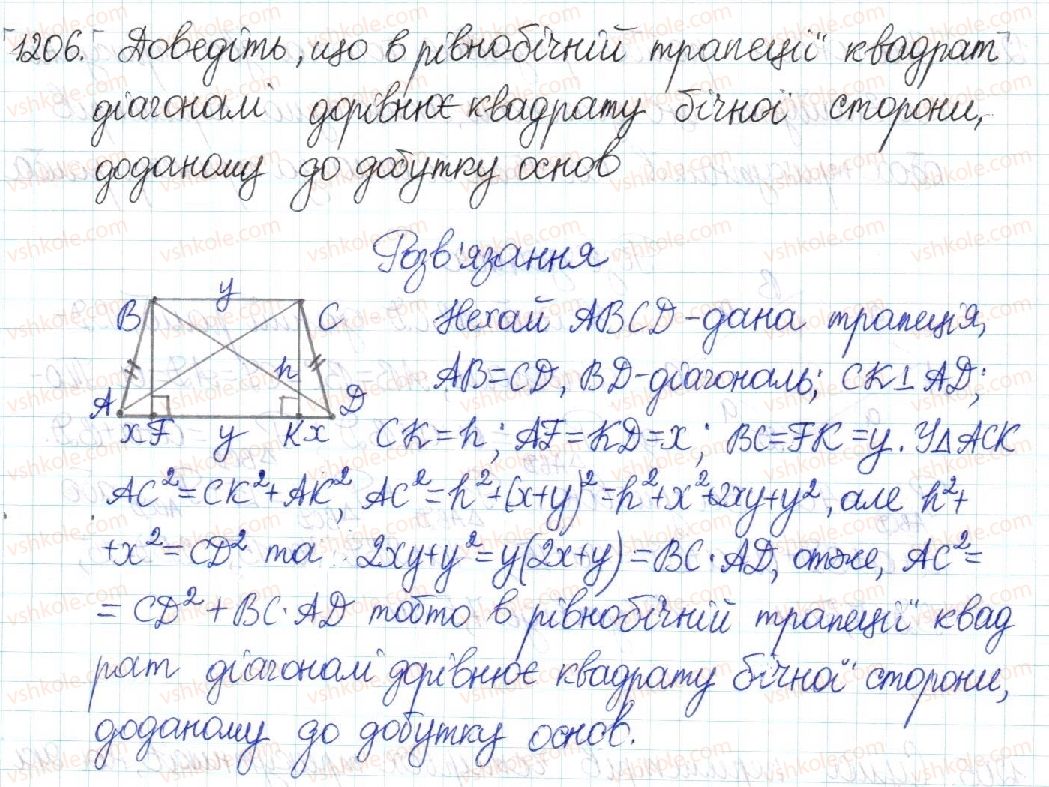 1206. Доведіть, що в рівнобічній трапеції квадрат
діагоналі дорівнює квадрату бічної сторони,
доданому до добутку основ
Розв'язання
B y C
h
A D
x F y K x
Нехай ABCD - дана трапеція,
AB=CD, BD-діагональ; CK⊥AD;
CK=h; AF=KD=x; BC=FK=y. У△ACK
AC²=CK²+AK², AC²=h²+(x+y)²=h²+x²+2xy+y², але h²+
+x²=CD² та 2xy+y²=y(2x+y)=BC·AD, отже, AC²=
=CD²+BC·AD тобто в рівнобічній трапеції квад
рат діагоналі дорівнює квадрату бічної сторони,
доданому до добутку основ.
vshkole.com